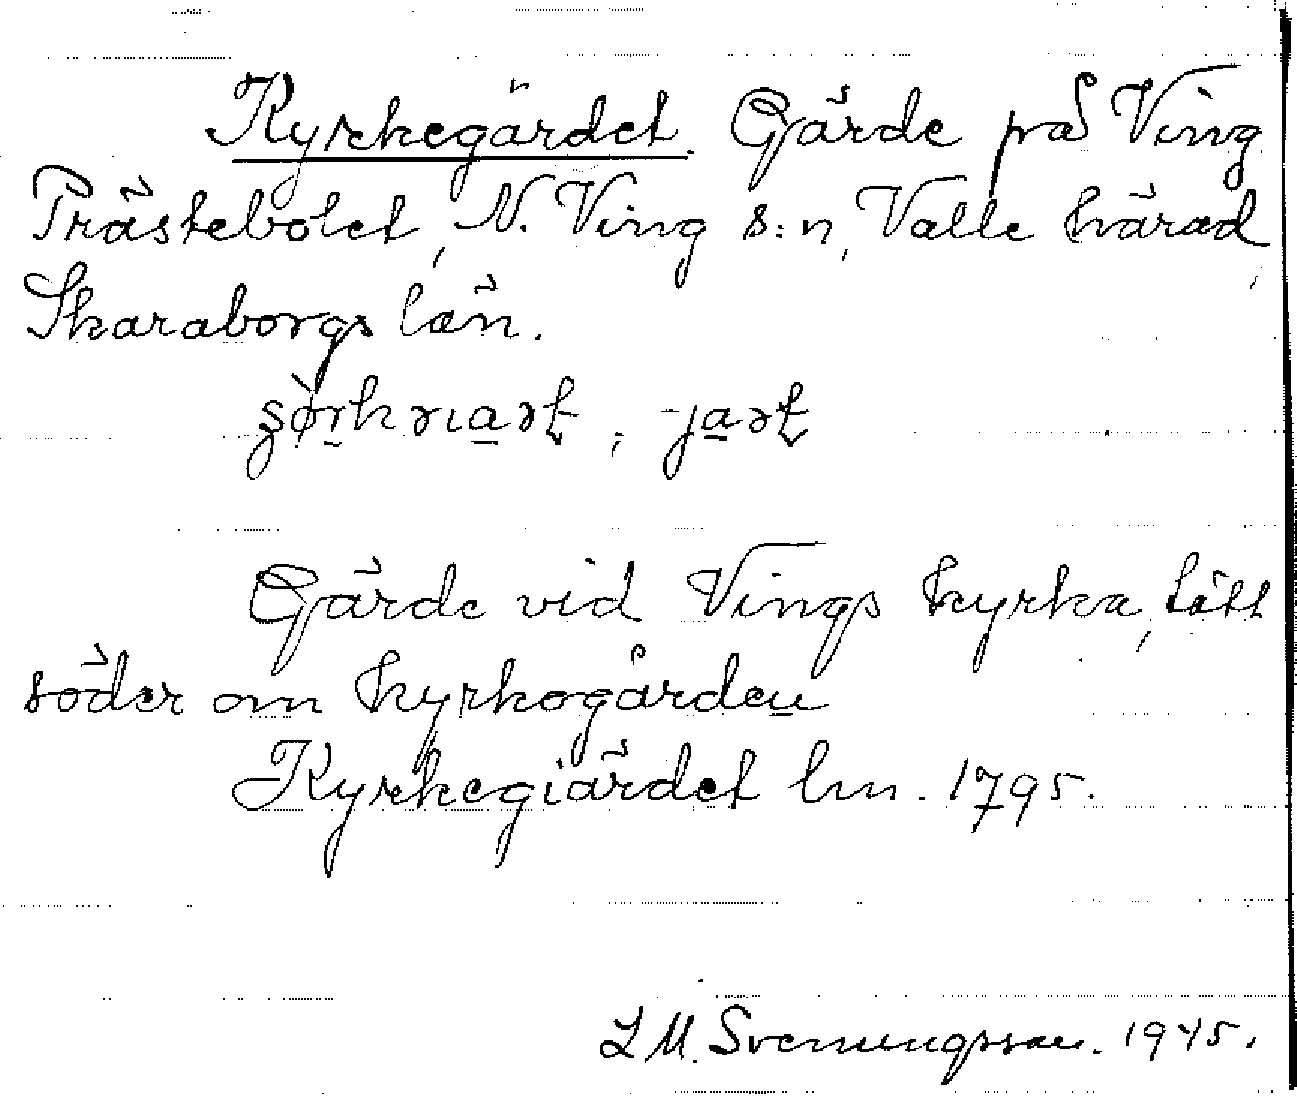 Kyrkegärdet. Gärde på Ving
Prästebolet, N. Ving s:n, Valle härad,
Skaraborgs län.
Gärde vid Vings kyrka, tätt
söder om kyrkogården
Kyrkegiärdet lm. 1795.
L M. Svenungsson. 1945.